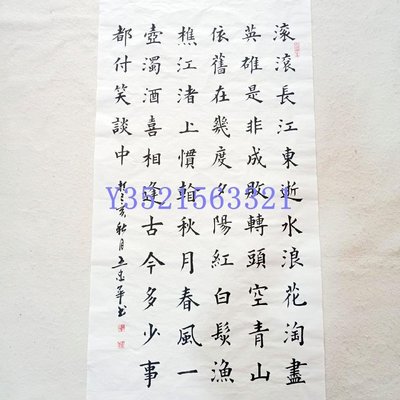 滚滚長江東逝水浪花淘盡
英雄是非成敗轉頭空青山
依舊在幾度夕陽紅白髮漁
樵江渚上慣翰秋月春風一
壺濁酒喜相逢古今多少事
都付笑談中
亥秋月華書
Y3521563321